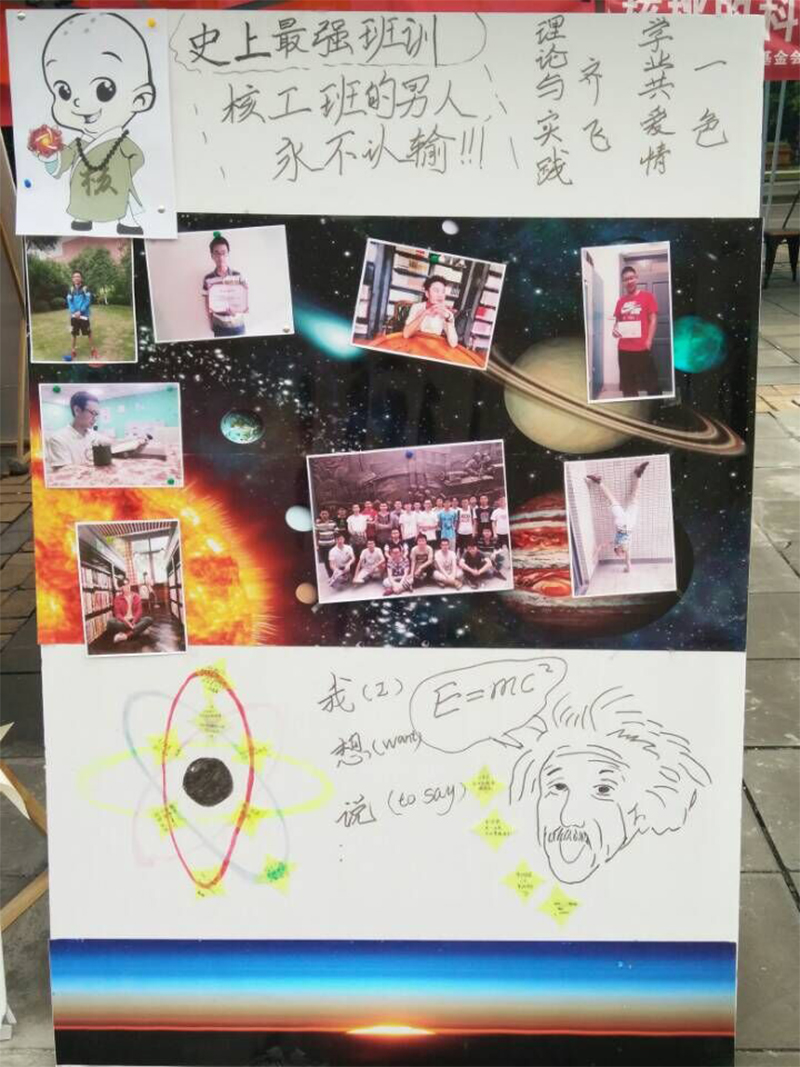 史上最强班训
核工班的男人
永不认输!!!
理论与实践
齐飞
学业共爱情
一色
核
我(I)
想(want)
说(to say)
E=mc²
基金会